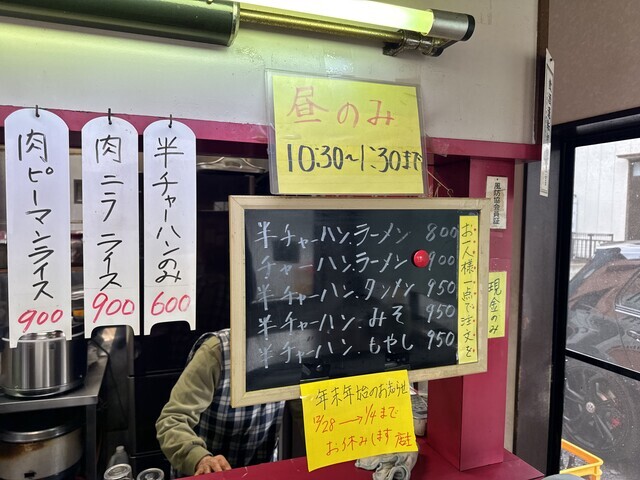 肉ピーマンライス
900
肉ニラライス
900
半チャーハンのみ
600
昼のみ
10:30~1:30まで
半チャーハン.ラーメン 800
チャーハン.ラーメン 900
半チャーハン.タンメン 950
半チャーハン.みそ 950
半チャーハン.もやし 950
お一人様一点で注文を
現金のみ
年末年始のお知らせ
12/28→1/4まで
お休みします 店主